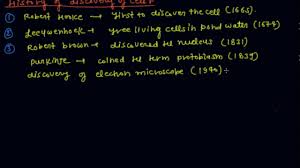 History of discovery of cell
① Robert Hooke → first to discover the cell (1665).
② Leeuwenhock → free living cells in pond water (1674)
③ Robert brown → discovered the nucleus (1831)
Purkinje → coined the term protoplasm (1839)
discovery of electron microscope (1940)